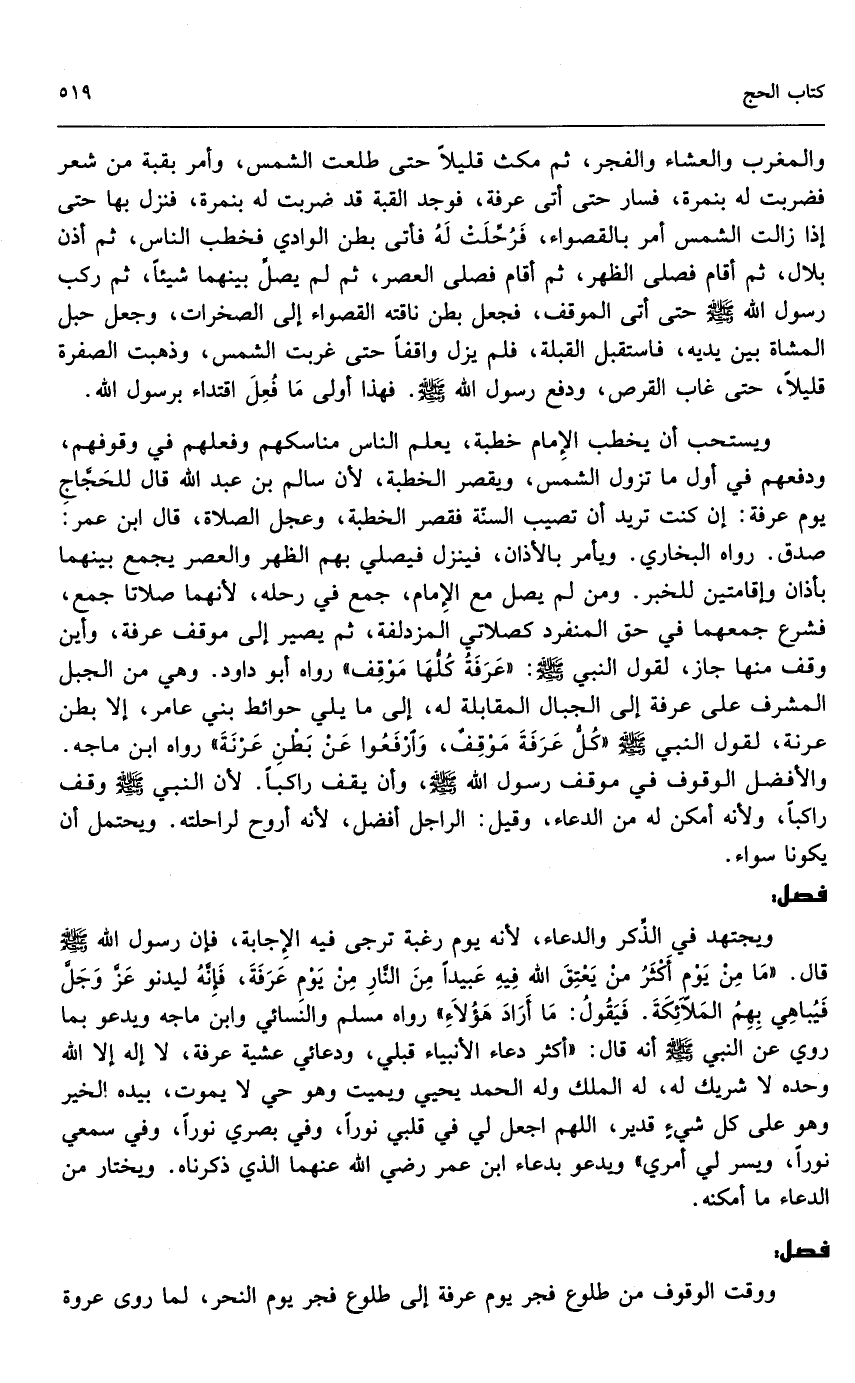 كتاب الحج ٥١٩
والمغرب والعشاء والفجر، ثم مكث قليلاً حتى طلعت الشمس، وأمر بقبة من شعر
فضربت له بنمرة، فسار حتى أتى عرفة، فوجد القبة قد ضربت له بنمرة، فنزل بها حتى
إذا زالت الشمس أمر بالقصواء، فَرُحِّلَتْ لَهُ فأتى بطن الوادي فخطب الناس، ثم أذن
بلال، ثم أقام فصلى الظهر، ثم أقام فصلى العصر، ثم لم يصلِّ بينهما شيئاً، ثم ركب
رسول الله ﷺ حتى أتى الموقف، فجعل بطن ناقته القصواء إلى الصخرات، وجعل حبل
المشاة بين يديه، فاستقبل القبلة، فلم يزل واقفاً حتى غربت الشمس، وذهبت الصفرة
قليلاً، حتى غاب القرص، ودفع رسول الله ﷺ. فهذا أولى مَا فُعِلَ اقتداء برسول الله.
ويستحب أن يخطب الإمام خطبة، يعلم الناس مناسكهم وفعلهم في وقوفهم،
ودفعهم في أول ما تزول الشمس، ويقصر الخطبة، لأن سالم بن عبد الله قال للحَجَّاجِ
يوم عرفة: إن كنت تريد أن تصيب السنّة فقصر الخطبة، وعجل الصلاة، قال ابن عمر:
صدق. رواه البخاري. ويأمر بالأذان، فينزل فيصلي بهم الظهر والعصر يجمع بينهما
بأذان وإقامتين للخبر. ومن لم يصل مع الإمام، جمع في رحله، لأنهما صلاتا جمع،
فشرع جمعهما في حق المنفرد كصلاتي المزدلفة، ثم يصير إلى موقف عرفة، وأين
وقف منها جاز، لقول النبي ﷺ: «عَرَفَةُ كُلُّهَا مَوْقِف» رواه أبو داود. وهي من الجبل
المشرف على عرفة إلى الجبال المقابلة له، إلى ما يلي حوائط بني عامر، إلا بطن
عرنة، لقول النبي ﷺ «كُلُّ عَرَفَةَ مَوْقِفٌ، وَٱرْفَعُوا عَنْ بَطْنِ عَرْنَةَ» رواه ابن ماجه.
والأفضل الوقوف في موقف رسول الله ﷺ، وأن يقف راكباً. لأن النبي ﷺ وقف
راكباً، ولأنه أمكن له من الدعاء، وقيل: الراجل أفضل، لأنه أروح لراحلته. ويحتمل أن
يكونا سواء.
فصل:
ويجتهد في الذِّكر والدعاء، لأنه يوم رغبة ترجى فيه الإجابة، فإن رسول الله ﷺ
قال. «مَا مِنْ يَوْمٍ أَكْثَرُ منْ يَعْتِقَ الله فِيهِ عَبيداً مِنَ النَّارِ مِنْ يَوْمِ عَرَفَةَ، فَإِنَّهُ ليدنو عَزَّ وَجَلَّ
فَيُبَاهِي بِهِمُ المَلَآئِكَةَ. فَيَقُولُ: مَا أَرَادَ هَؤُلاَءِ» رواه مسلم والنسائي وابن ماجه ويدعو بما
روي عن النبي ﷺ أنه قال: «أكثر دعاء الأنبياء قبلي، ودعائي عشية عرفة، لا إله إلا الله
وحده لا شريك له، له الملك وله الحمد يحيي ويميت وهو حي لا يموت، بيده الخير
وهو على كل شيءٍ قدير، اللهم اجعل لي في قلبي نوراً، وفي بصري نوراً، وفي سمعي
نوراً، ويسر لي أمري» ويدعو بدعاء ابن عمر رضي الله عنهما الذي ذكرناه. ويختار من
الدعاء ما أمكنه.
فصل:
ووقت الوقوف من طلوع فجر يوم عرفة إلى طلوع فجر يوم النحر، لما روى عروة